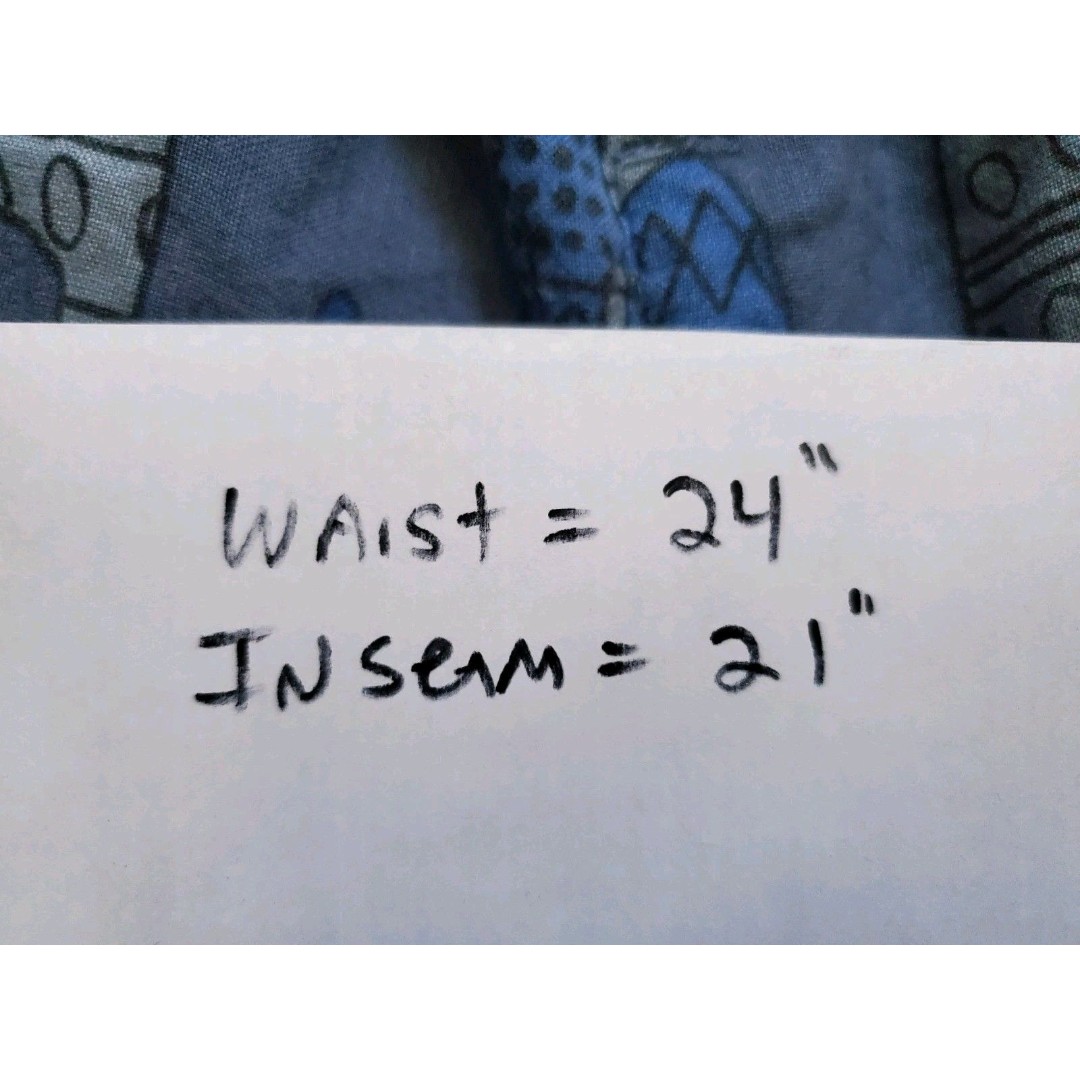 WAIST = 24"
INSeam = 21"